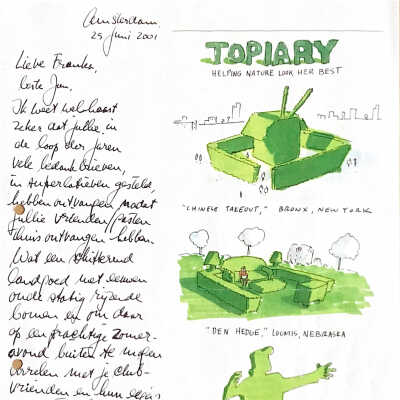 Amsterdam,
25 juni 2001
Lieve Franka,
beste Jan.
Ik weet welhaast
zeker dat jullie in
de loop der jaren
vele bedankbrieven,
in superlatieven gesteld,
hebben ontvangen nadat
jullie vrienden/gasten
thuis ontvangen hebben.
Wat een schitterend
landgoed met eeuwen
oude statig rijzende
bomen en om daar
op een prachtige zomer-
avond buiten te mogen
borrelen met je club-
vrienden en hun
TOPIARY
HELPING NATURE LOOK HER BEST
"CHINESE TAKEOUT," BRONX, NEW YORK
"DEN HEDGE," LOOMIS, NEBRASKA